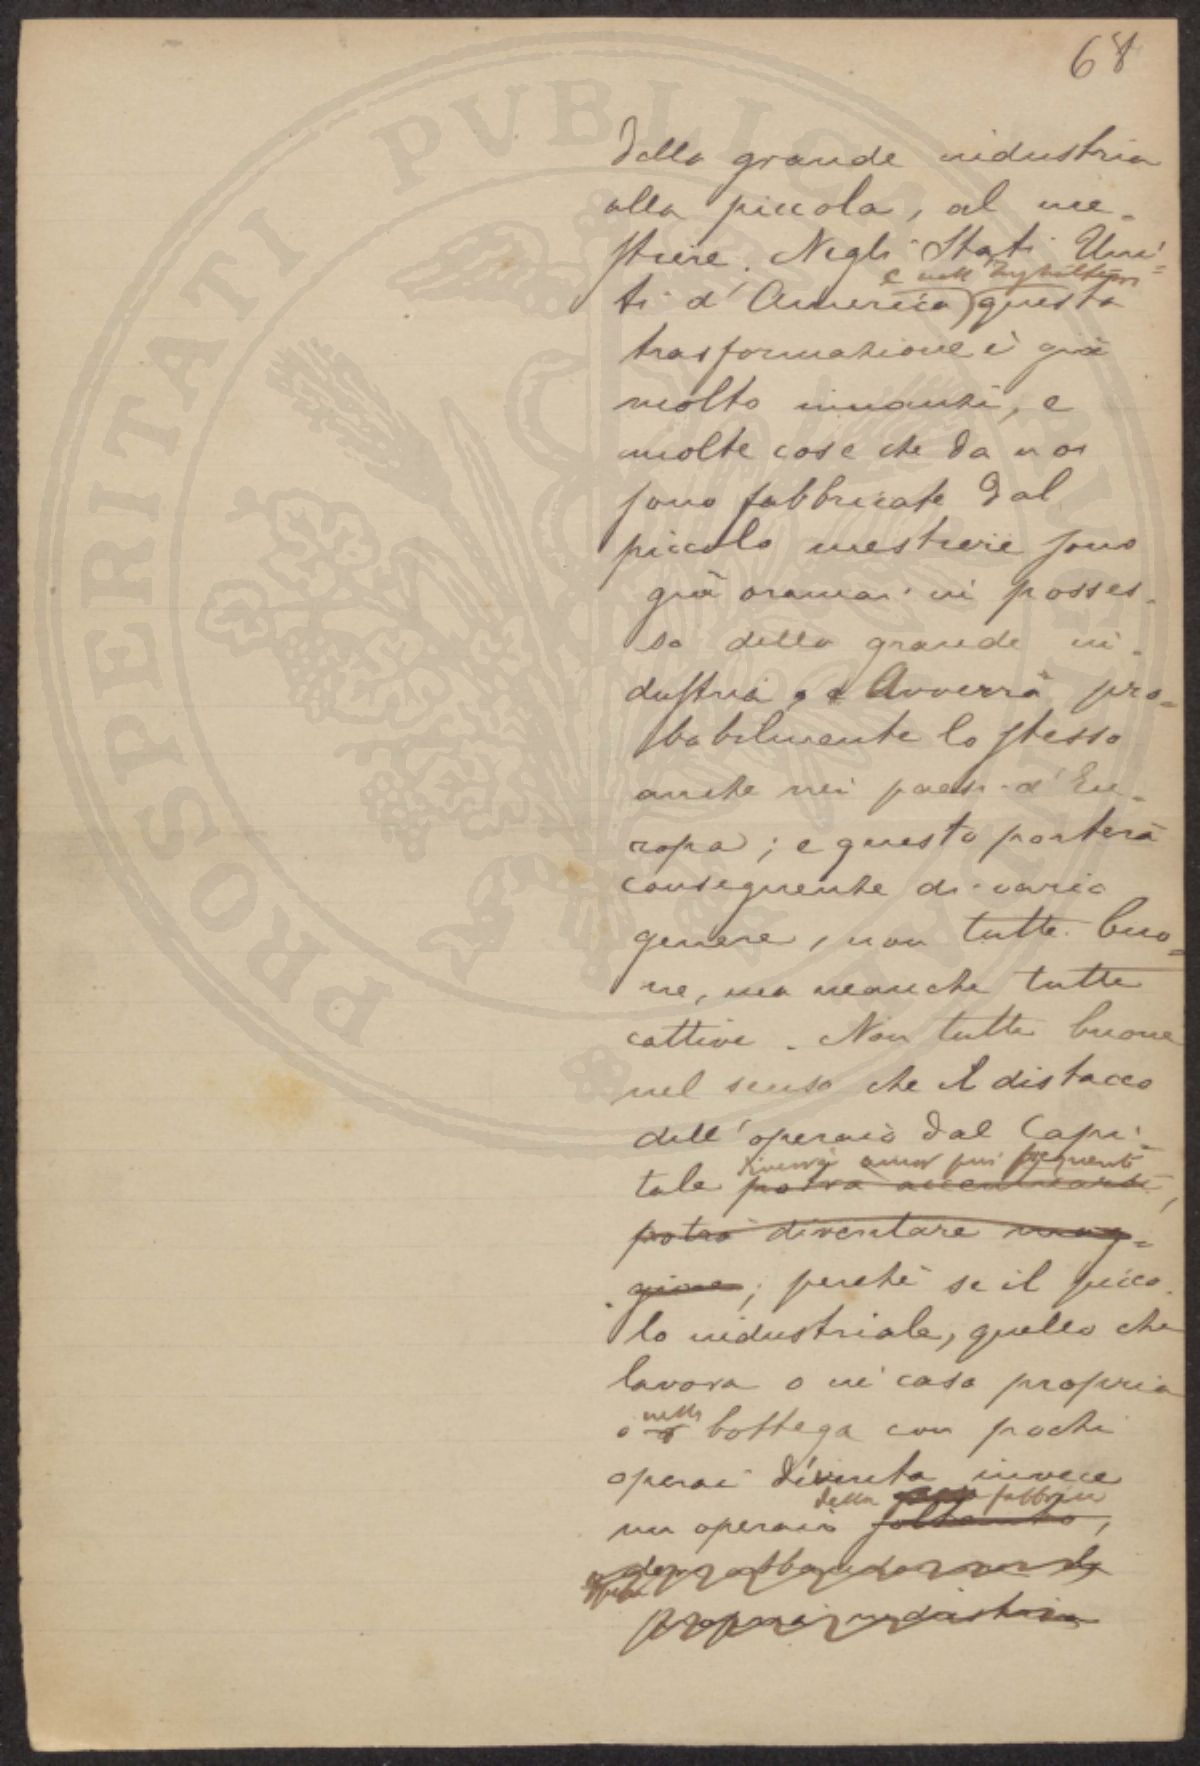 68
della grande industria
alla piccola, al me-
stiere. Negli Stati Uni=
e nell'Inghilterra
ti d'America) questa
trasformazione è già
molto innanzi, e
molte cose che da noi
sono fabbricate dal
piccolo mestiere sono
già oramai in posses-
so della grande in-
dustria. Avverrà pro=
babilmente lo stesso
anche nei paesi d'Eu-
ropa; e questo porterà
conseguenze di vario
genere, non tutte buo=
ne, ma neanche tutte
cattive. Non tutte buone
nel senso che il distacco
dell'operaio dal Capi-
diverrà ancor più frequente
tale potrà accentuarsi,
potrà diventare mag=
giore; perchè se il picco-
lo industriale, quello che
lavora o in casa propria
nella
o bottega con pochi
operai diventa invece
della fabbrica
un operaio soltanto,
propria industria
PROSPERITATI PVBLICAE